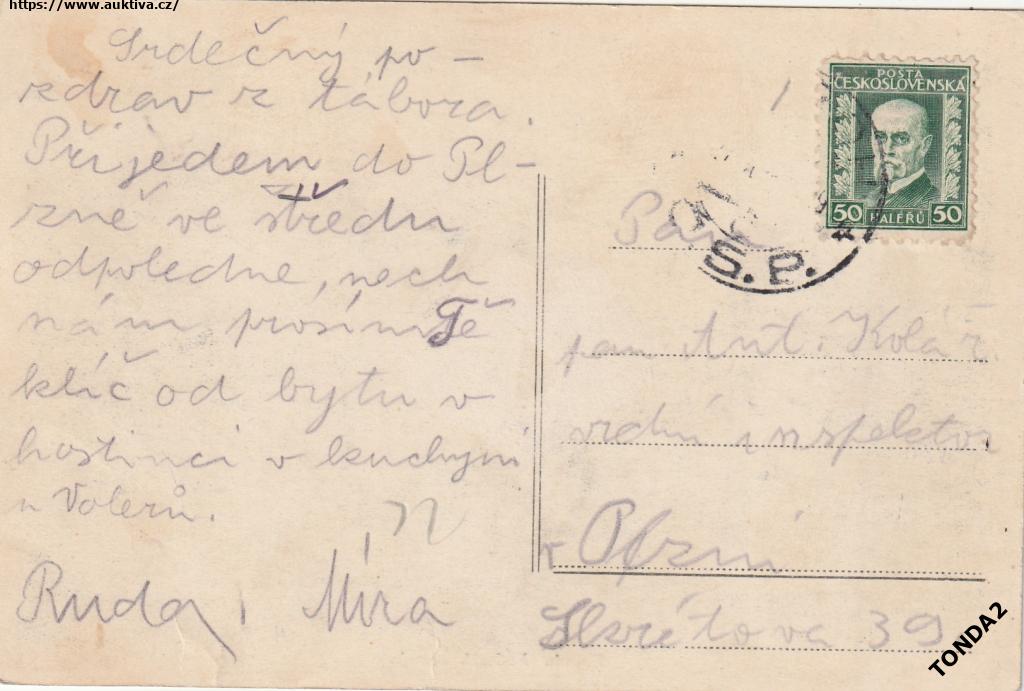 https://www.auktiva.cz/
Srdečný po-
zdrav z tábora.
Přijedem do Pl-
zně ve středu
odpoledne, nech
nám prosím Tě
klíč od bytu v
hostinci v kuchyni
u Volerů.
Ruda, Míra
POŠTA
ČESKOSLOVENSKÁ
50 HALÉŘŮ 50
S.P.
Pan
pan Ant. Kolář
vrchní inspektor
v Plzni
Skrétova 39
TONDA2